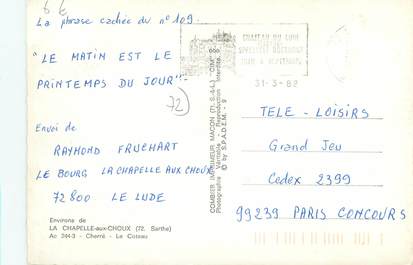 La phrase cachée du n° 109.
"LE MATIN EST LE
PRINTEMPS DU JOUR"
72
Envoi de
RAYMOND FRUCHART
LE BOURG LA CHAPELLE AUX CHOUX
72800 LE LUDE
Environs de
LA CHAPELLE-aux-CHOUX (72. Sarthe)
Ac 344-3 - Cherré - Le Coteau
COMBIER IMPRIMEUR MACON (71. S.-&-L.) "CIM"
Photographie Véritable - Reproduction Interdite
© by S.P.A.D.E.M.
CHATEAU DU LUDE
SPECTACLE NOCTURNE
JUIN A SEPTEMBRE
31-3-82
TELE - LOISIRS
Grand Jeu
Cedex 2399
99239 PARIS CONCOURS